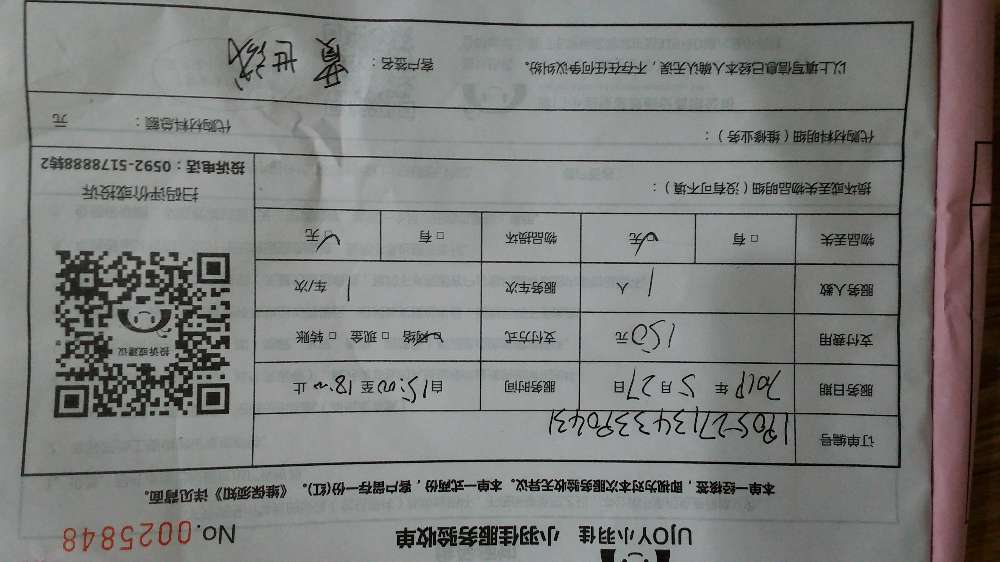 UJOY小羽佳 小羽佳服务验收单 No.0025848
本单一经接签，即视为对本次服务验收无异议。本单一式两份，客户留存一份(红)。《维保须知》详见背面。
订单编号
服务日期 2019年5月27日 服务时间 自15:00至18:00止
支付费用 150元 支付方式 ☑网络 □现金 □转账
服务人数 1人 服务车次 1车/次
物品丢失 □有 ☑无 物品损坏 □有 ☑无
损坏或丢失物品明细（没有可不填）：
代购材料明细（维修业务）： 代购材料总额： 元
以上填写信息已经本人确认无误，不存在任何争议纠纷。 客户签名：
投诉或建议
扫码评价或投诉
投诉电话：0592-5178888转2